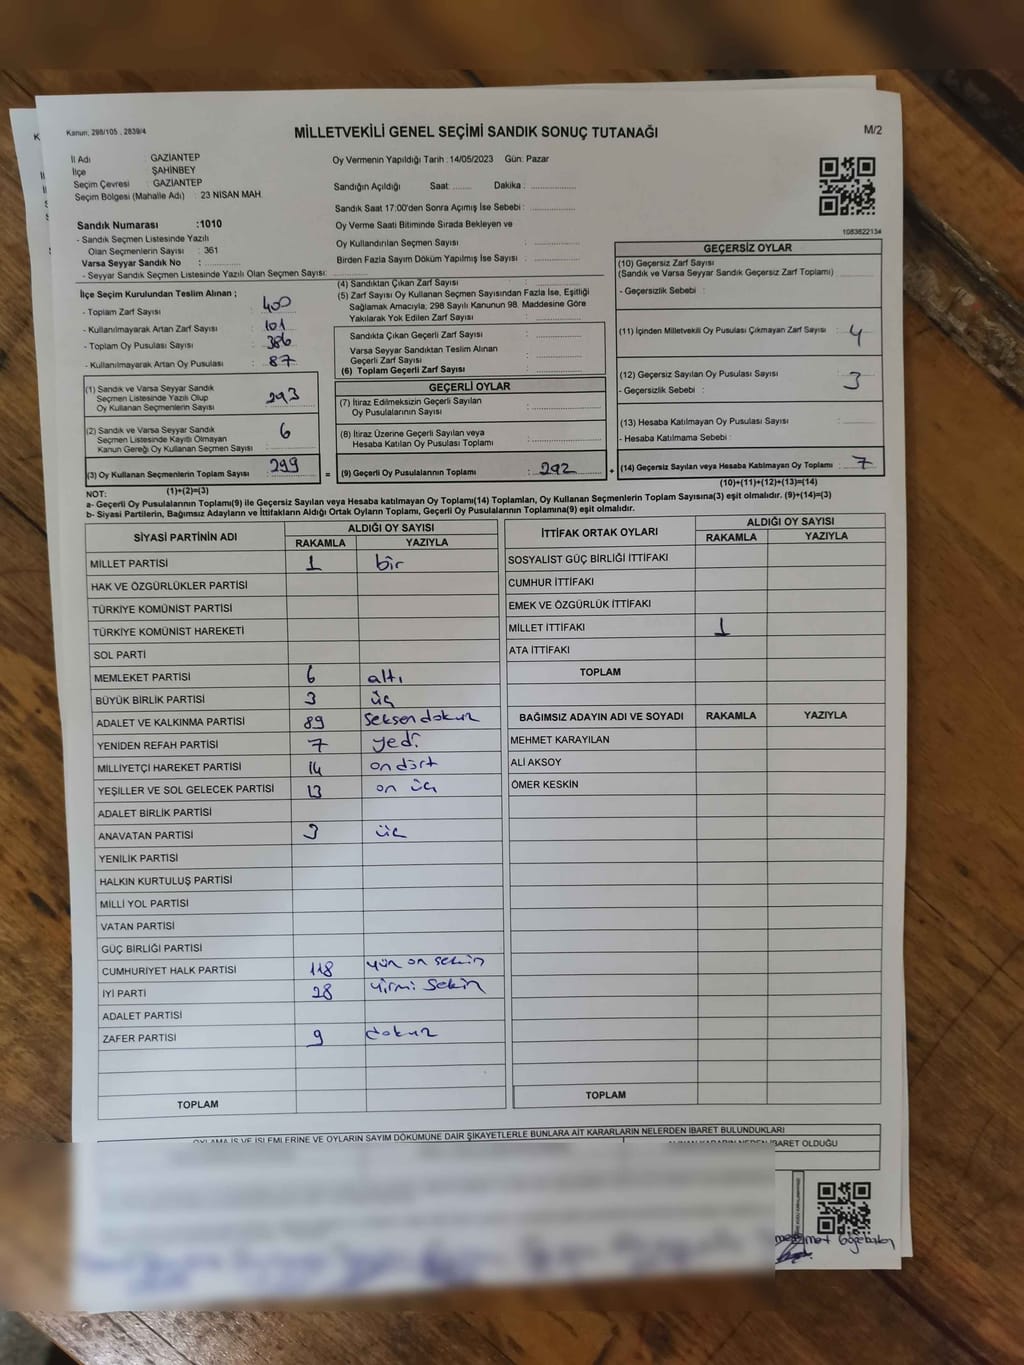 Kanun; 298/105 , 2839/4
MİLLETVEKİLİ GENEL SEÇİMİ SANDIK SONUÇ TUTANAĞI
M/2
İl Adı : GAZİANTEP
İlçe ŞAHİNBEY
Seçim Çevresi : GAZİANTEP
Seçim Bölgesi (Mahalle Adı) : 23 NİSAN MAH.
Oy Vermenin Yapıldığı Tarih :14/05/2023 Gün: Pazar
Sandığın Açıldığı Saat: ........ Dakika : ....................
Sandık Saat 17:00'den Sonra Açımış İse Sebebi : ....................
Oy Verme Saati Bitiminde Sırada Bekleyen ve
Oy Kullandırılan Seçmen Sayısı : ....................
Birden Fazla Sayım Döküm Yapılmış İse Sayısı : ....................
1083622134
Sandık Numarası :1010
- Sandık Seçmen Listesinde Yazılı
Olan Seçmenlerin Sayısı : 361
Varsa Seyyar Sandık No : ....................
- Seyyar Sandık Seçmen Listesinde Yazılı Olan Seçmen Sayısı: ....................
İlçe Seçim Kurulundan Teslim Alınan ;
- Toplam Zarf Sayısı : 400
- Kullanılmayarak Artan Zarf Sayısı : 101
- Toplam Oy Pusulası Sayısı : 386
- Kullanılmayarak Artan Oy Pusulası : 87
(1) Sandık ve Varsa Seyyar Sandık
Seçmen Listesinde Yazılı Olup
Oy Kullanan Seçmenlerin Sayısı : 293
(2) Sandık ve Varsa Seyyar Sandık
Seçmen Listesinde Kayıtlı Olmayan
Kanun Gereği Oy Kullanan Seçmen Sayısı : 6
(3) Oy Kullanan Seçmenlerin Toplam Sayısı : 299
(1)+(2)=(3)
(4) Sandıktan Çıkan Zarf Sayısı : ....................
(5) Zarf Sayısı Oy Kullanan Seçmen Sayısından Fazla İse, Eşitliği
Sağlamak Amacıyla, 298 Sayılı Kanunun 98. Maddesine Göre
Yakılarak Yok Edilen Zarf Sayısı : ....................
Sandıkta Çıkan Geçerli Zarf Sayısı : ....................
Varsa Seyyar Sandıktan Teslim Alınan
Geçerli Zarf Sayısı : ....................
(6) Toplam Geçerli Zarf Sayısı : ....................
GEÇERLİ OYLAR
(7) İtiraz Edilmeksizin Geçerli Sayılan
Oy Pusulalarının Sayısı : ....................
(8) İtiraz Üzerine Geçerli Sayılan veya
Hesaba Katılan Oy Pusulası Toplamı : ....................
= (9) Geçerli Oy Pusulalarının Toplamı : 292 +
GEÇERSİZ OYLAR
(10) Geçersiz Zarf Sayısı
(Sandık ve Varsa Seyyar Sandık Geçersiz Zarf Toplamı) ....................
- Geçersizlik Sebebi :
(11) İçinden Milletvekili Oy Pusulası Çıkmayan Zarf Sayısı : 4
(12) Geçersiz Sayılan Oy Pusulası Sayısı : 3
- Geçersizlik Sebebi :
(13) Hesaba Katılmayan Oy Pusulası Sayısı : ....................
- Hesaba Katılmama Sebebi :
(14) Geçersiz Sayılan veya Hesaba Katılmayan Oy Toplamı : 7
(10)+(11)+(12)+(13)=(14)
NOT:
a- Geçerli Oy Pusulalarının Toplamı(9) ile Geçersiz Sayılan veya Hesaba katılmayan Oy Toplamı(14) Toplamları, Oy Kullanan Seçmenlerin Toplam Sayısına(3) eşit olmalıdır. (9)+(14)=(3)
b- Siyasi Partilerin, Bağımsız Adayların ve İttifakların Aldığı Ortak Oyların Toplamı, Geçerli Oy Pusulalarının Toplamına(9) eşit olmalıdır.
SİYASİ PARTİNİN ADI ALDIĞI OY SAYISI
RAKAMLA YAZIYLA
MİLLET PARTİSİ 1 bir
HAK VE ÖZGÜRLÜKLER PARTİSİ
TÜRKİYE KOMÜNİST PARTİSİ
TÜRKİYE KOMÜNİST HAREKETİ
SOL PARTİ
MEMLEKET PARTİSİ 6 altı
BÜYÜK BİRLİK PARTİSİ 3 üç
ADALET VE KALKINMA PARTİSİ 89 seksen dokuz
YENİDEN REFAH PARTİSİ 7 yedi
MİLLİYETÇİ HAREKET PARTİSİ 14 on dört
YEŞİLLER VE SOL GELECEK PARTİSİ 13 on üç
ADALET BİRLİK PARTİSİ
ANAVATAN PARTİSİ 3 üç
YENİLİK PARTİSİ
HALKIN KURTULUŞ PARTİSİ
MİLLİ YOL PARTİSİ
VATAN PARTİSİ
GÜÇ BİRLİĞİ PARTİSİ
CUMHURİYET HALK PARTİSİ 118 yüz on sekiz
İYİ PARTİ 28 yirmi sekiz
ADALET PARTİSİ
ZAFER PARTİSİ 9 dokuz
TOPLAM
İTTİFAK ORTAK OYLARI ALDIĞI OY SAYISI
RAKAMLA YAZIYLA
SOSYALİST GÜÇ BİRLİĞİ İTTİFAKI
CUMHUR İTTİFAKI
EMEK VE ÖZGÜRLÜK İTTİFAKI
MİLLET İTTİFAKI 1
ATA İTTİFAKI
TOPLAM
BAĞIMSIZ ADAYIN ADI VE SOYADI RAKAMLA YAZIYLA
MEHMET KARAYILAN
ALİ AKSOY
ÖMER KESKİN
TOPLAM
OYLAMA İŞ VE İŞLEMLERİNE VE OYLARIN SAYIM DÖKÜMÜNE DAİR ŞİKAYETLERLE BUNLARA AİT KARARLARIN NELERDEN İBARET BULUNDUKLARI
ALINAN KARARIN NEDEN İBARET OLDUĞU